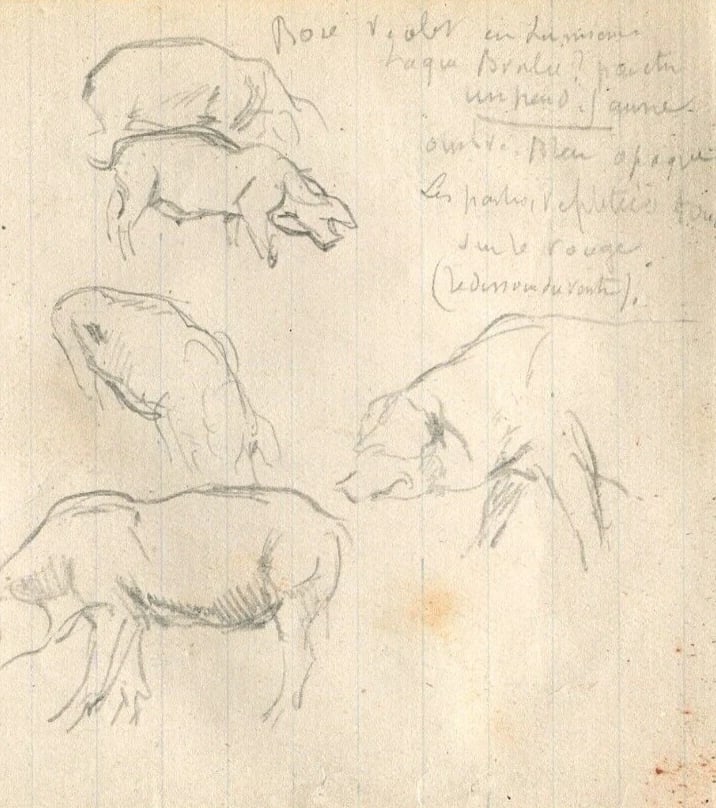 Rose violet en lumière
laque Brulée? partie
un peu jaune
ombre. Bleu opaque
Les parties
sur le rouge
(le dessous du ventre).